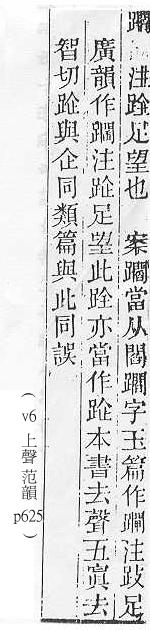 注跧足望也 案當从閻字玉篇作注跂足
廣韻作注䟸足望此跧亦當作䟸本書去聲五寘去
智切䟸與企同類篇與此同誤
( v6 上聲 范韻 p625 )